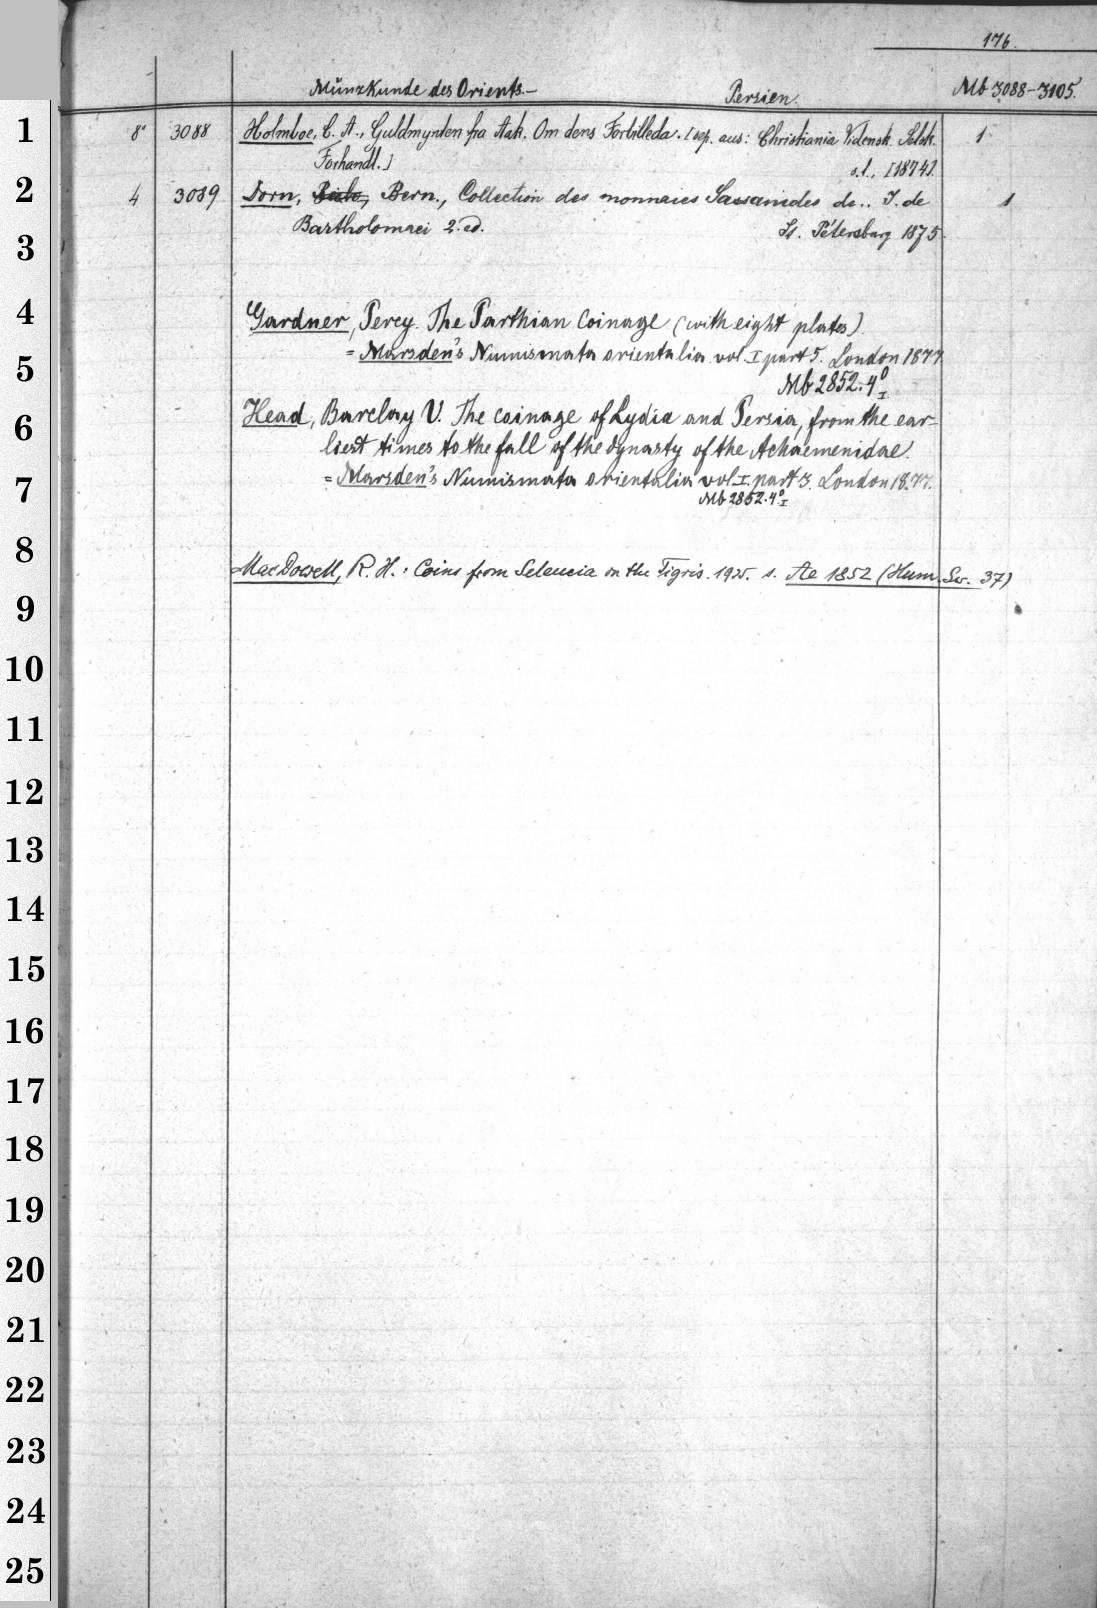 176.
Münzkunde des Orients.— Persien. Mb 3088-3105.
1 8° 3088 Holmboe, C. A., Guldmynten fra Aak. Om dens Forbilleda. [sep. aus: Christiania Vidensk. Selsk. 1
Forhandl.] s.l. [1874].
2 4 3089 Dorn, Bern., Collection des monnaies Sassanides de.. J. de 1
3 Bartholomaei 2. ed. St. Pétersburg 1875.
4 Gardner, Percy. The Parthian Coinage (with eight plates)
5 = Marsden's Numismata orientalia vol. I part 5. London 1877.
Mb 2852. 4° I
6 Head, Barclay V. The coinage of Lydia and Persia, from the ear-
liest times to the fall of the dynasty of the Achaemenidae.
7 = Marsden's Numismata orientalia vol. I. part 3. London 1877.
Mb 2852. 4° I
8 MacDowell, R. H.: Coins from Seleucia on the Tigris. 1935. s. Ae 1852 (Hum. Ser. 37)
9
10
11
12
13
14
15
16
17
18
19
20
21
22
23
24
25